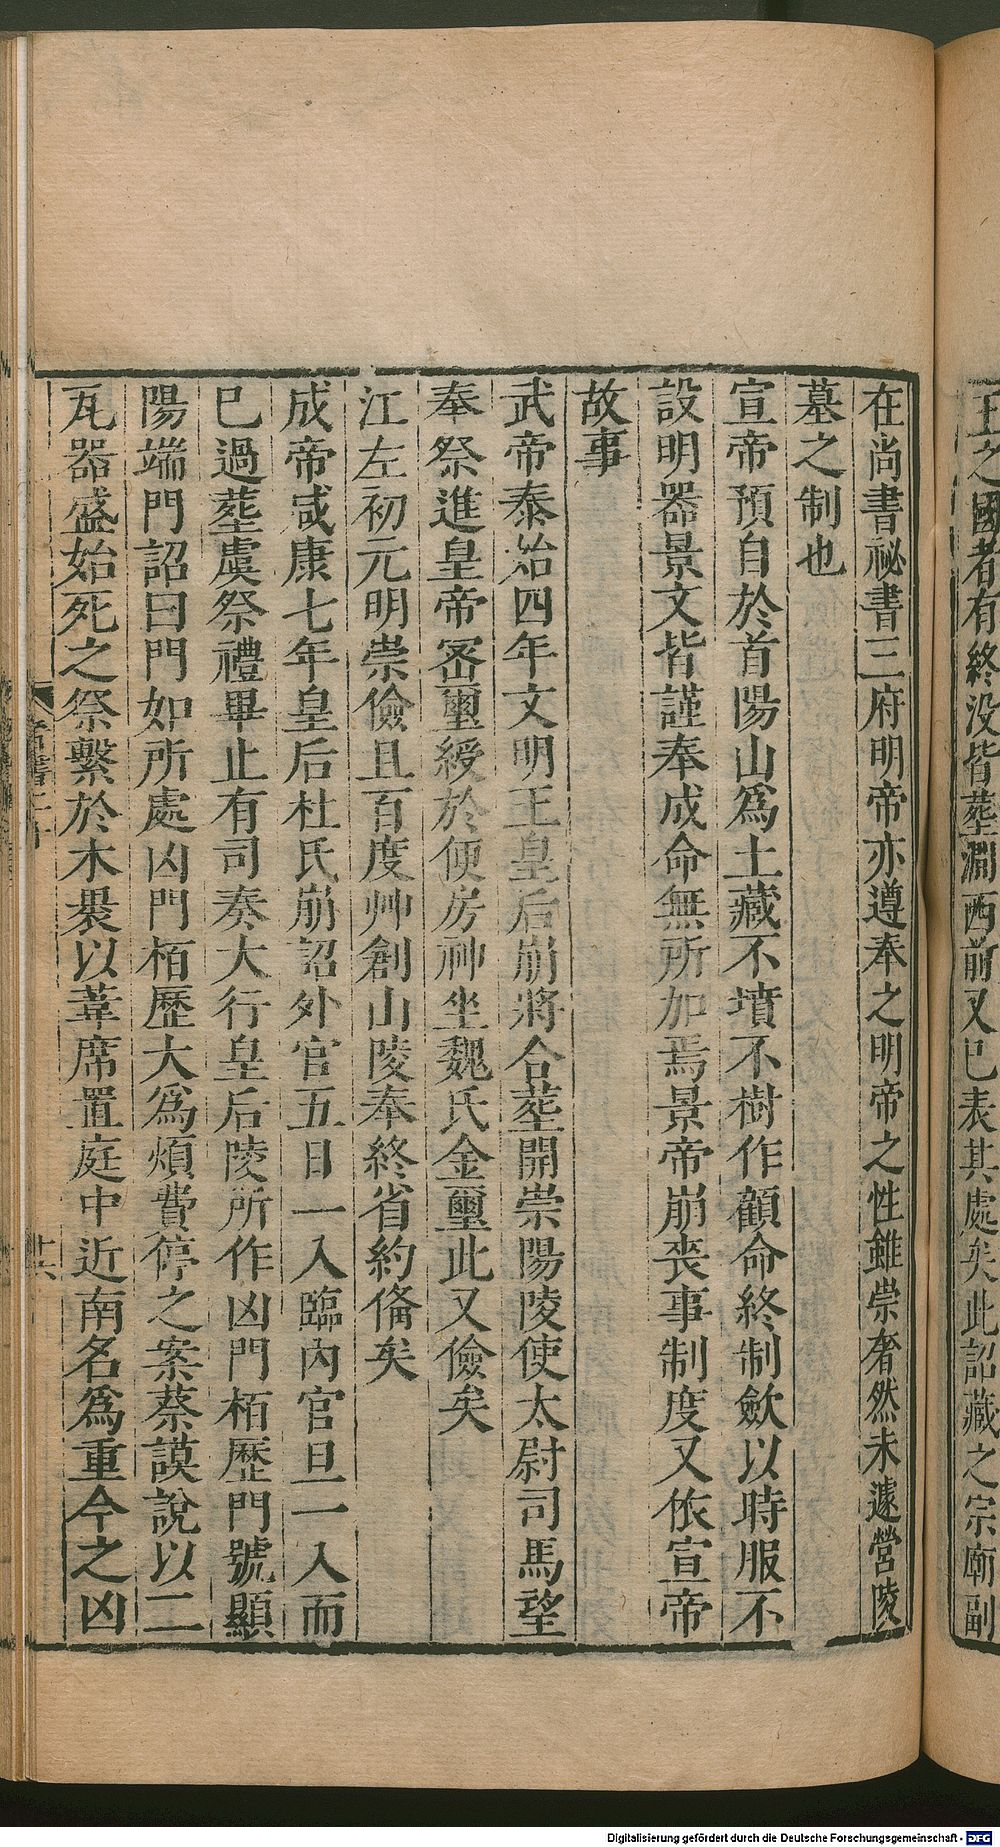 王之國者有終没皆塟澗西前又巳表其處矣此詔藏之宗廟副
在尚書祕書三府明帝亦遵奉之明帝之性雖崇奢然未遽營陵
墓之制也
宣帝預自於首陽山爲土藏不墳不樹作顧命終制歛以時服不
設明器景文皆謹奉成命無所加焉景帝崩丧事制度又依宣帝
故事
武帝泰始四年文明王皇后崩將合塟開崇陽陵使太尉司馬望
奉祭進皇帝宻璽綬於便房神坐魏氏金璽此又儉矣
江左初元明崇儉且百度艸創山陵奉終省約俻矣
成帝咸康七年皇后杜氏崩詔外官五日一入臨內官旦一入而
巳過塟虞祭禮畢止有司奏大行皇后陵所作凶門栢歷門號顯
陽端門詔曰門如所處凶門栢歷大爲煩費停之案蔡謨說以二
瓦器盛始死之祭繫於木褁以葦席置庭中近南名爲重今之凶
十六
Digitalisierung gefördert durch die Deutsche Forschungsgemeinschaft - DFG